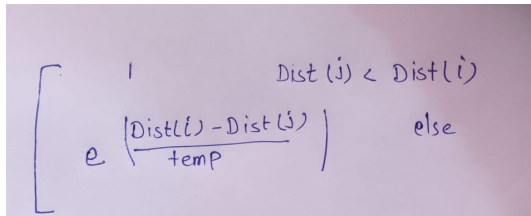 1 Dist (j) < Dist(i)
e (Dist(i) - Dist (j) / temp) else